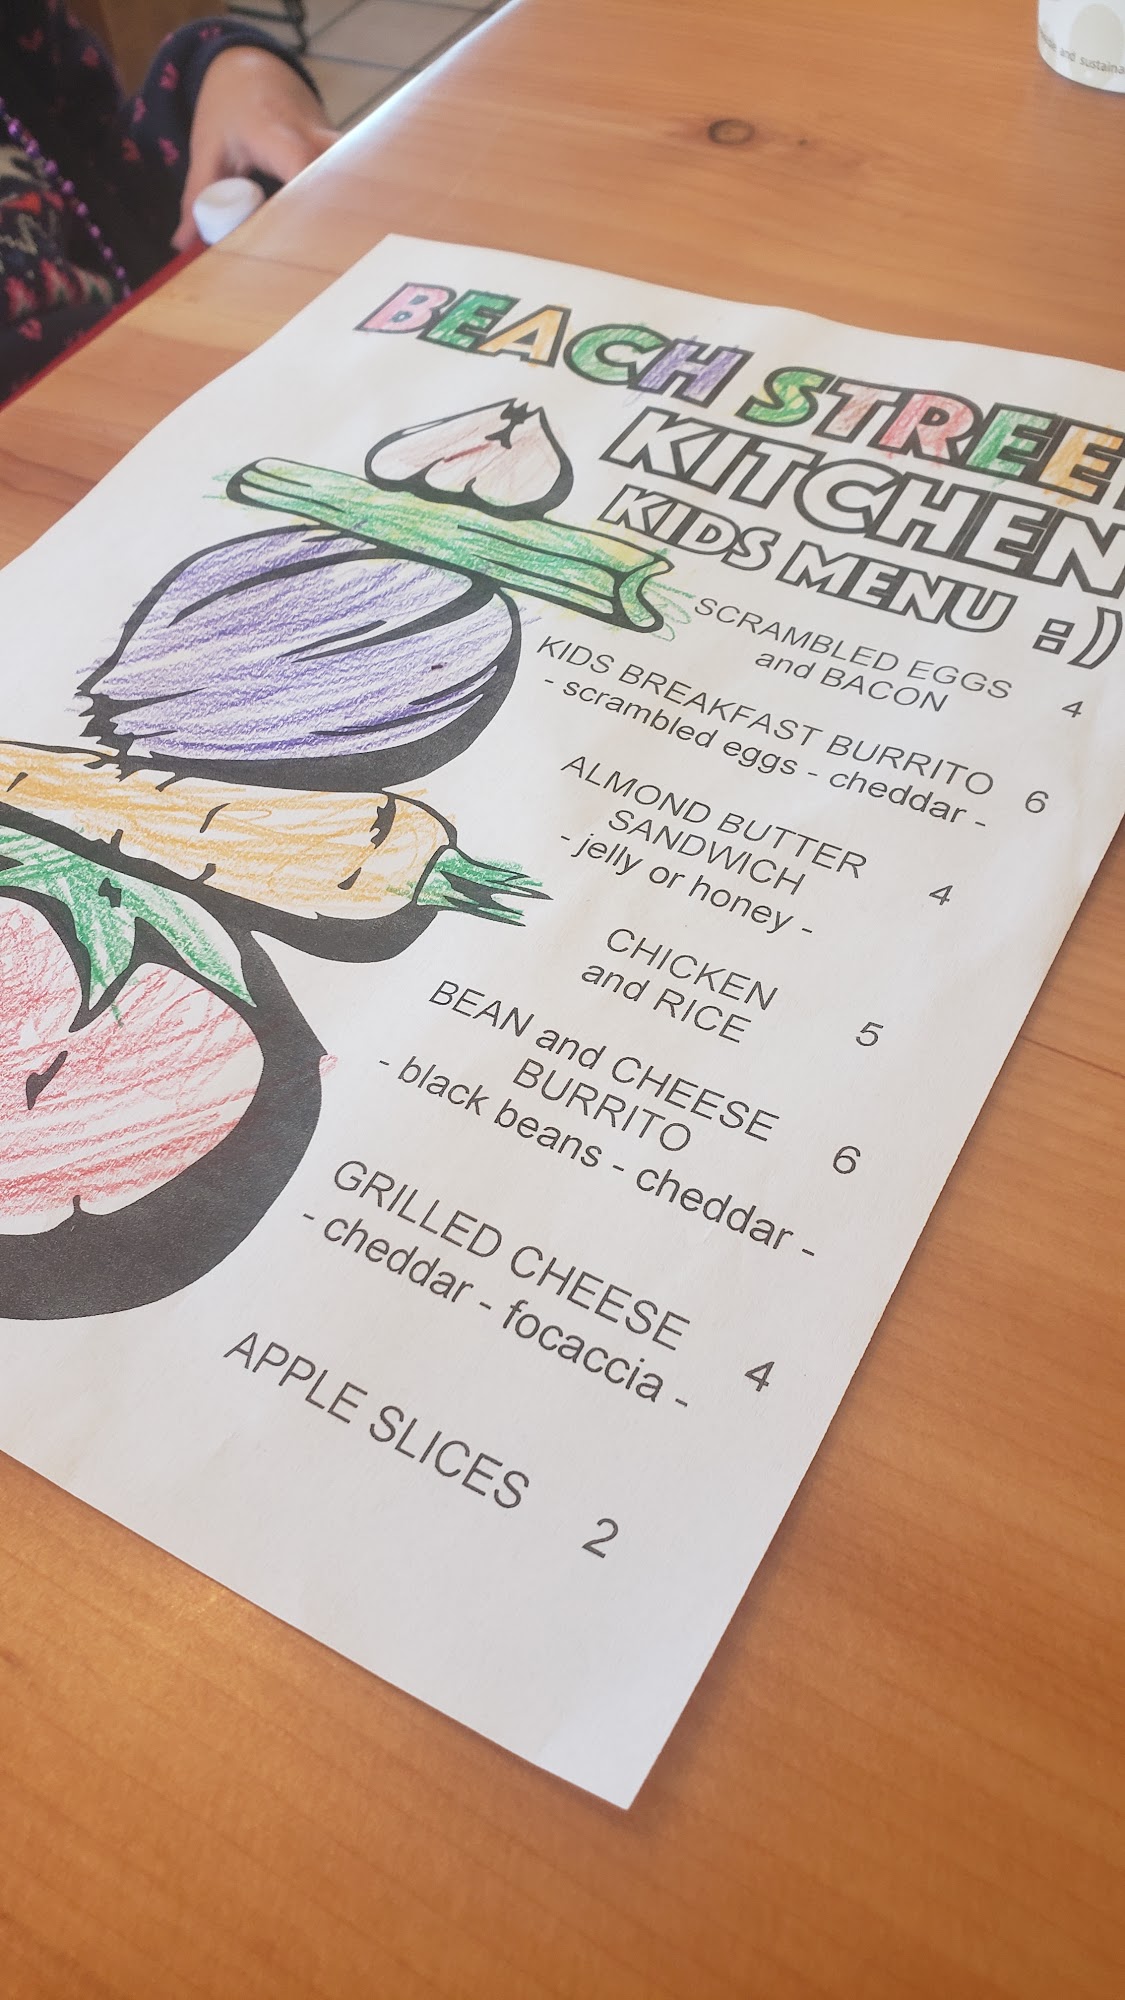 BEACH STREE
KITCHEN
KIDS MENU :)
SCRAMBLED EGGS
and BACON 4
KIDS BREAKFAST BURRITO
- scrambled eggs - cheddar - 6
ALMOND BUTTER
SANDWICH
- jelly or honey - 4
CHICKEN
and RICE 5
BEAN and CHEESE
BURRITO
- black beans - cheddar - 6
GRILLED CHEESE
- cheddar - focaccia - 4
APPLE SLICES 2
and sustaina